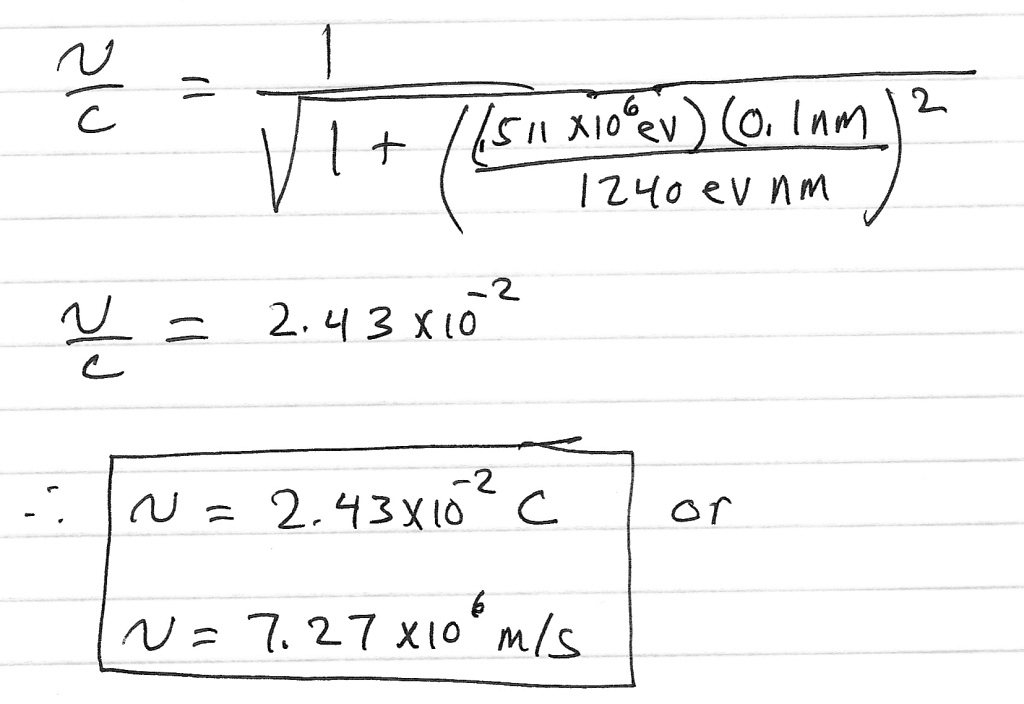 v/c = 1 / √(1 + ((.511 x10⁶ ev)(0.1nm) / 1240 ev nm)²)
v/c = 2.43 x10⁻²
∴ v = 2.43x10⁻² c or
v = 7.27 x10⁶ m/s